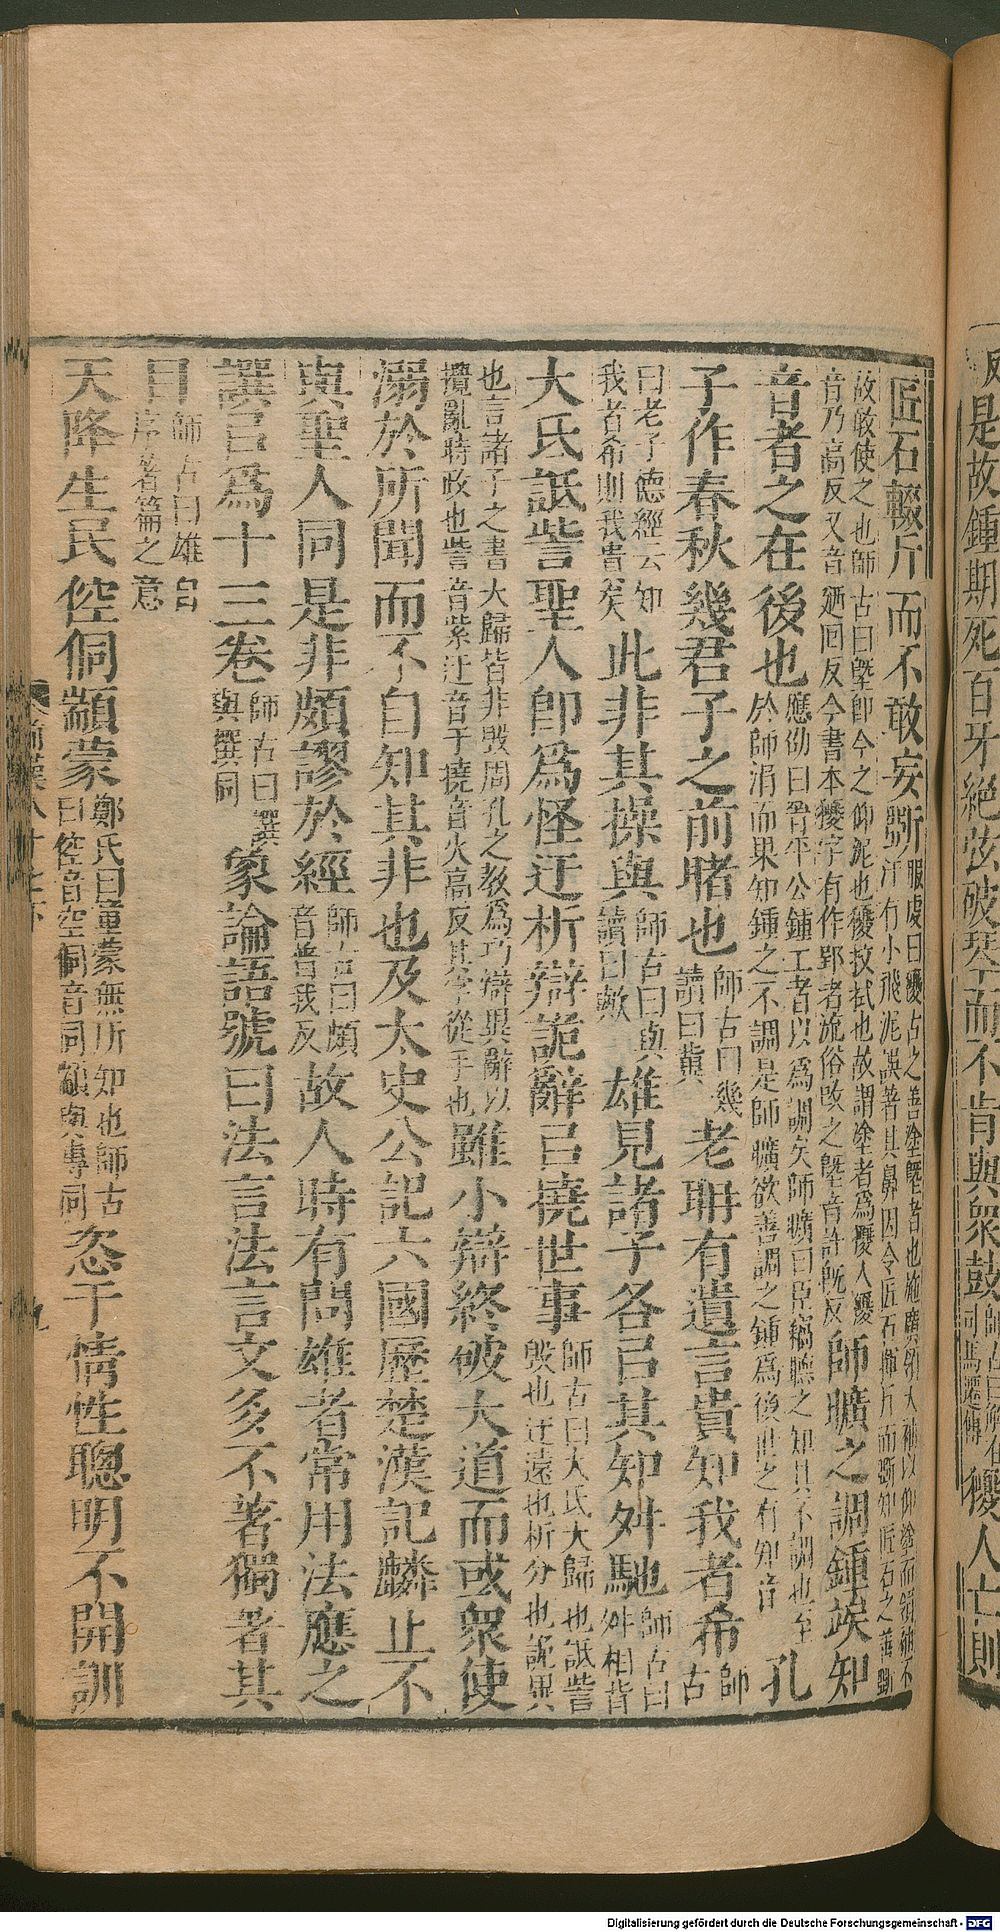 反是故鍾期死百牙絕弦破琴而不肯與衆鼓師古曰解在司馬遷傳獿人亡則
匠石輟斤而不敢妄斲服虔曰獿古之善塗塈者也施廣領大袖以仰塗而領袖不汙有小飛泥誤著其鼻因令匠石揮斤而斲知匠石之善斲
故敢使之也師古曰塈卽今之仰泥也獿抆拭也故謂塗者爲獿人獿音乃高反又音廼回反今書本獿字有作郢者流俗改之塈音許旣反師曠之調鍾竢知
音者之在後也應劭曰晉平公鍾工者以爲調矣師曠曰臣竊聽之知其不調也至於師涓而果知鍾之不調是師曠欲善調之鍾爲後世之有知音孔
子作春秋幾君子之前睹也師古曰幾讀曰冀老耼有遺言貴知我者希師古
曰老子德經云知我者希則我貴矣此非其操與師古曰與讀曰歟雄見諸子各㠯其知舛馳師古曰舛相背
大氐詆訾聖人卽爲怪迂析辯詭辭㠯撓世事師古曰大氐大歸也詆訾毀也迂遠也析分也詭異
也言諸子之書大歸皆非毀周孔之教爲巧辯異辭以攪亂時政也訾音紫迂音于撓音火高反其字從手也雖小辯終破大道而或衆使
溺於所聞而不自知其非也及太史公記六國歷楚漢記麟止不
與聖人同是非頗謬於經師古曰頗音普我反故人時有問雄者常用法應之
譔㠯爲十三卷師古曰譔與撰同象論語號曰法言法言文多不著獨著其
目師古曰雄自序著篇之意
天降生民倥侗顓蒙鄭氏曰童蒙無所知也師古曰倥音空侗音同顓與專同恣于情性聰明不開訓
前漢八十七下
九
Digitalisierung gefördert durch die Deutsche Forschungsgemeinschaft - DFG